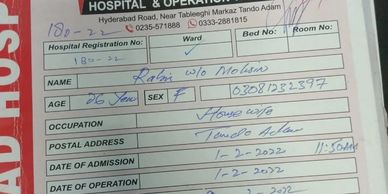 HOSPITAL & OPERATION
Hyderabad Road, Near Tableeghi Markaz Tando Adam
0235-571888 0333-2881815
180-22
Hospital Registration No: Ward Bed No: Room No:
180-22 ✓
NAME Rabia w/o Mohsin
AGE 26 Year SEX F 03081232397
OCCUPATION House wife
POSTAL ADDRESS Tando Adam
DATE OF ADMISSION 1-2-2022 11:50AM
DATE OF OPERATION 1-2-2022
AD HOSP